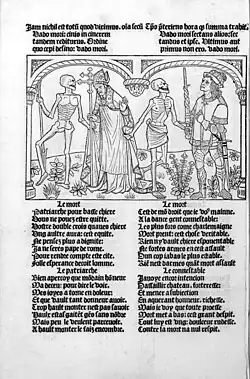 Jam nichil est totũ quod viximus. oĩa secũ
Vado mori: cinis in cinerem
tandem rediturus. Ordine
quo cepi desino: vado mori.
Tp̃s preteriens hora q̃ summa trahit.
Vado mori sectans alios: sec
tandus et ipse. Ultimus aut
primus non ero. vado mori.
Le mort
Patriarche pour basse chiere
Vous ne pouez estre quitte.
Vostre double croix quauez chiere
Ung aultre aura: cest equite.
Ne pensez plus a dignite:
Ja ne serez pape de rome.
Pour rendre compte este cite.
Folle esperance decoit lomme.
Le patriarche
Bien apercoy que mõdain hõneur
Ma deceu: pour dire le voir.
Mes ioyes a torne en doleur:
Et que vault tant honneur auoir.
Trop hault monter nest pas sauoir
Haulx estas gastẽt gẽs sans nõbre
Mais peu le veulent parceuoir.
A hault monter le faiz encombre.
Le mort
Cest de mõ droit que ie vo⁹ maine.
A la dance gent connestable:
Les plus fors comme charlemaigne
Mort prent: cest chose veritable.
Rien ny vault chiere espouentable
Ne fortes armes en cest assault
Dun cop iabas le plus estable.
Riẽ nest darmes quãt mort assault
Le connestable
Jauoye encor intencion
Dassaillir chasteau, forteresse:
Et mener a subiection
En aquerant honneur, richesse.
Mais ie voy que toute proesse
Mort met a bas: cest grant despit.
Tout luy est ung: douleur rudesse.
Contre la mort na nul respit.